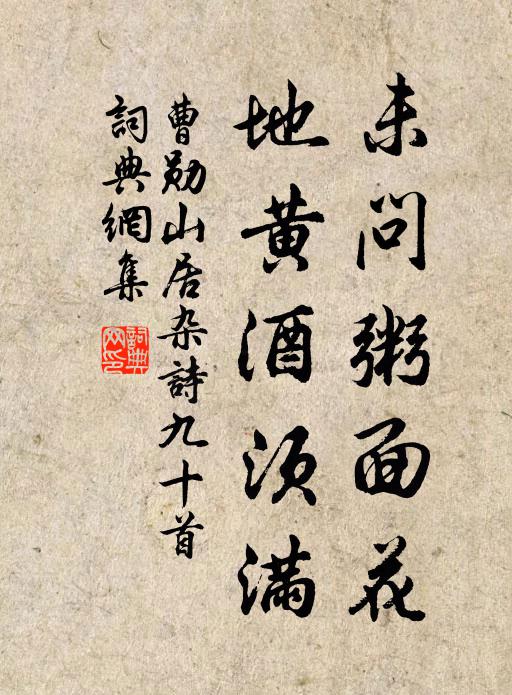 未问粥面花
地黄酒须满
曹勋山居杂詩九十首
詞典網集
詞典网印